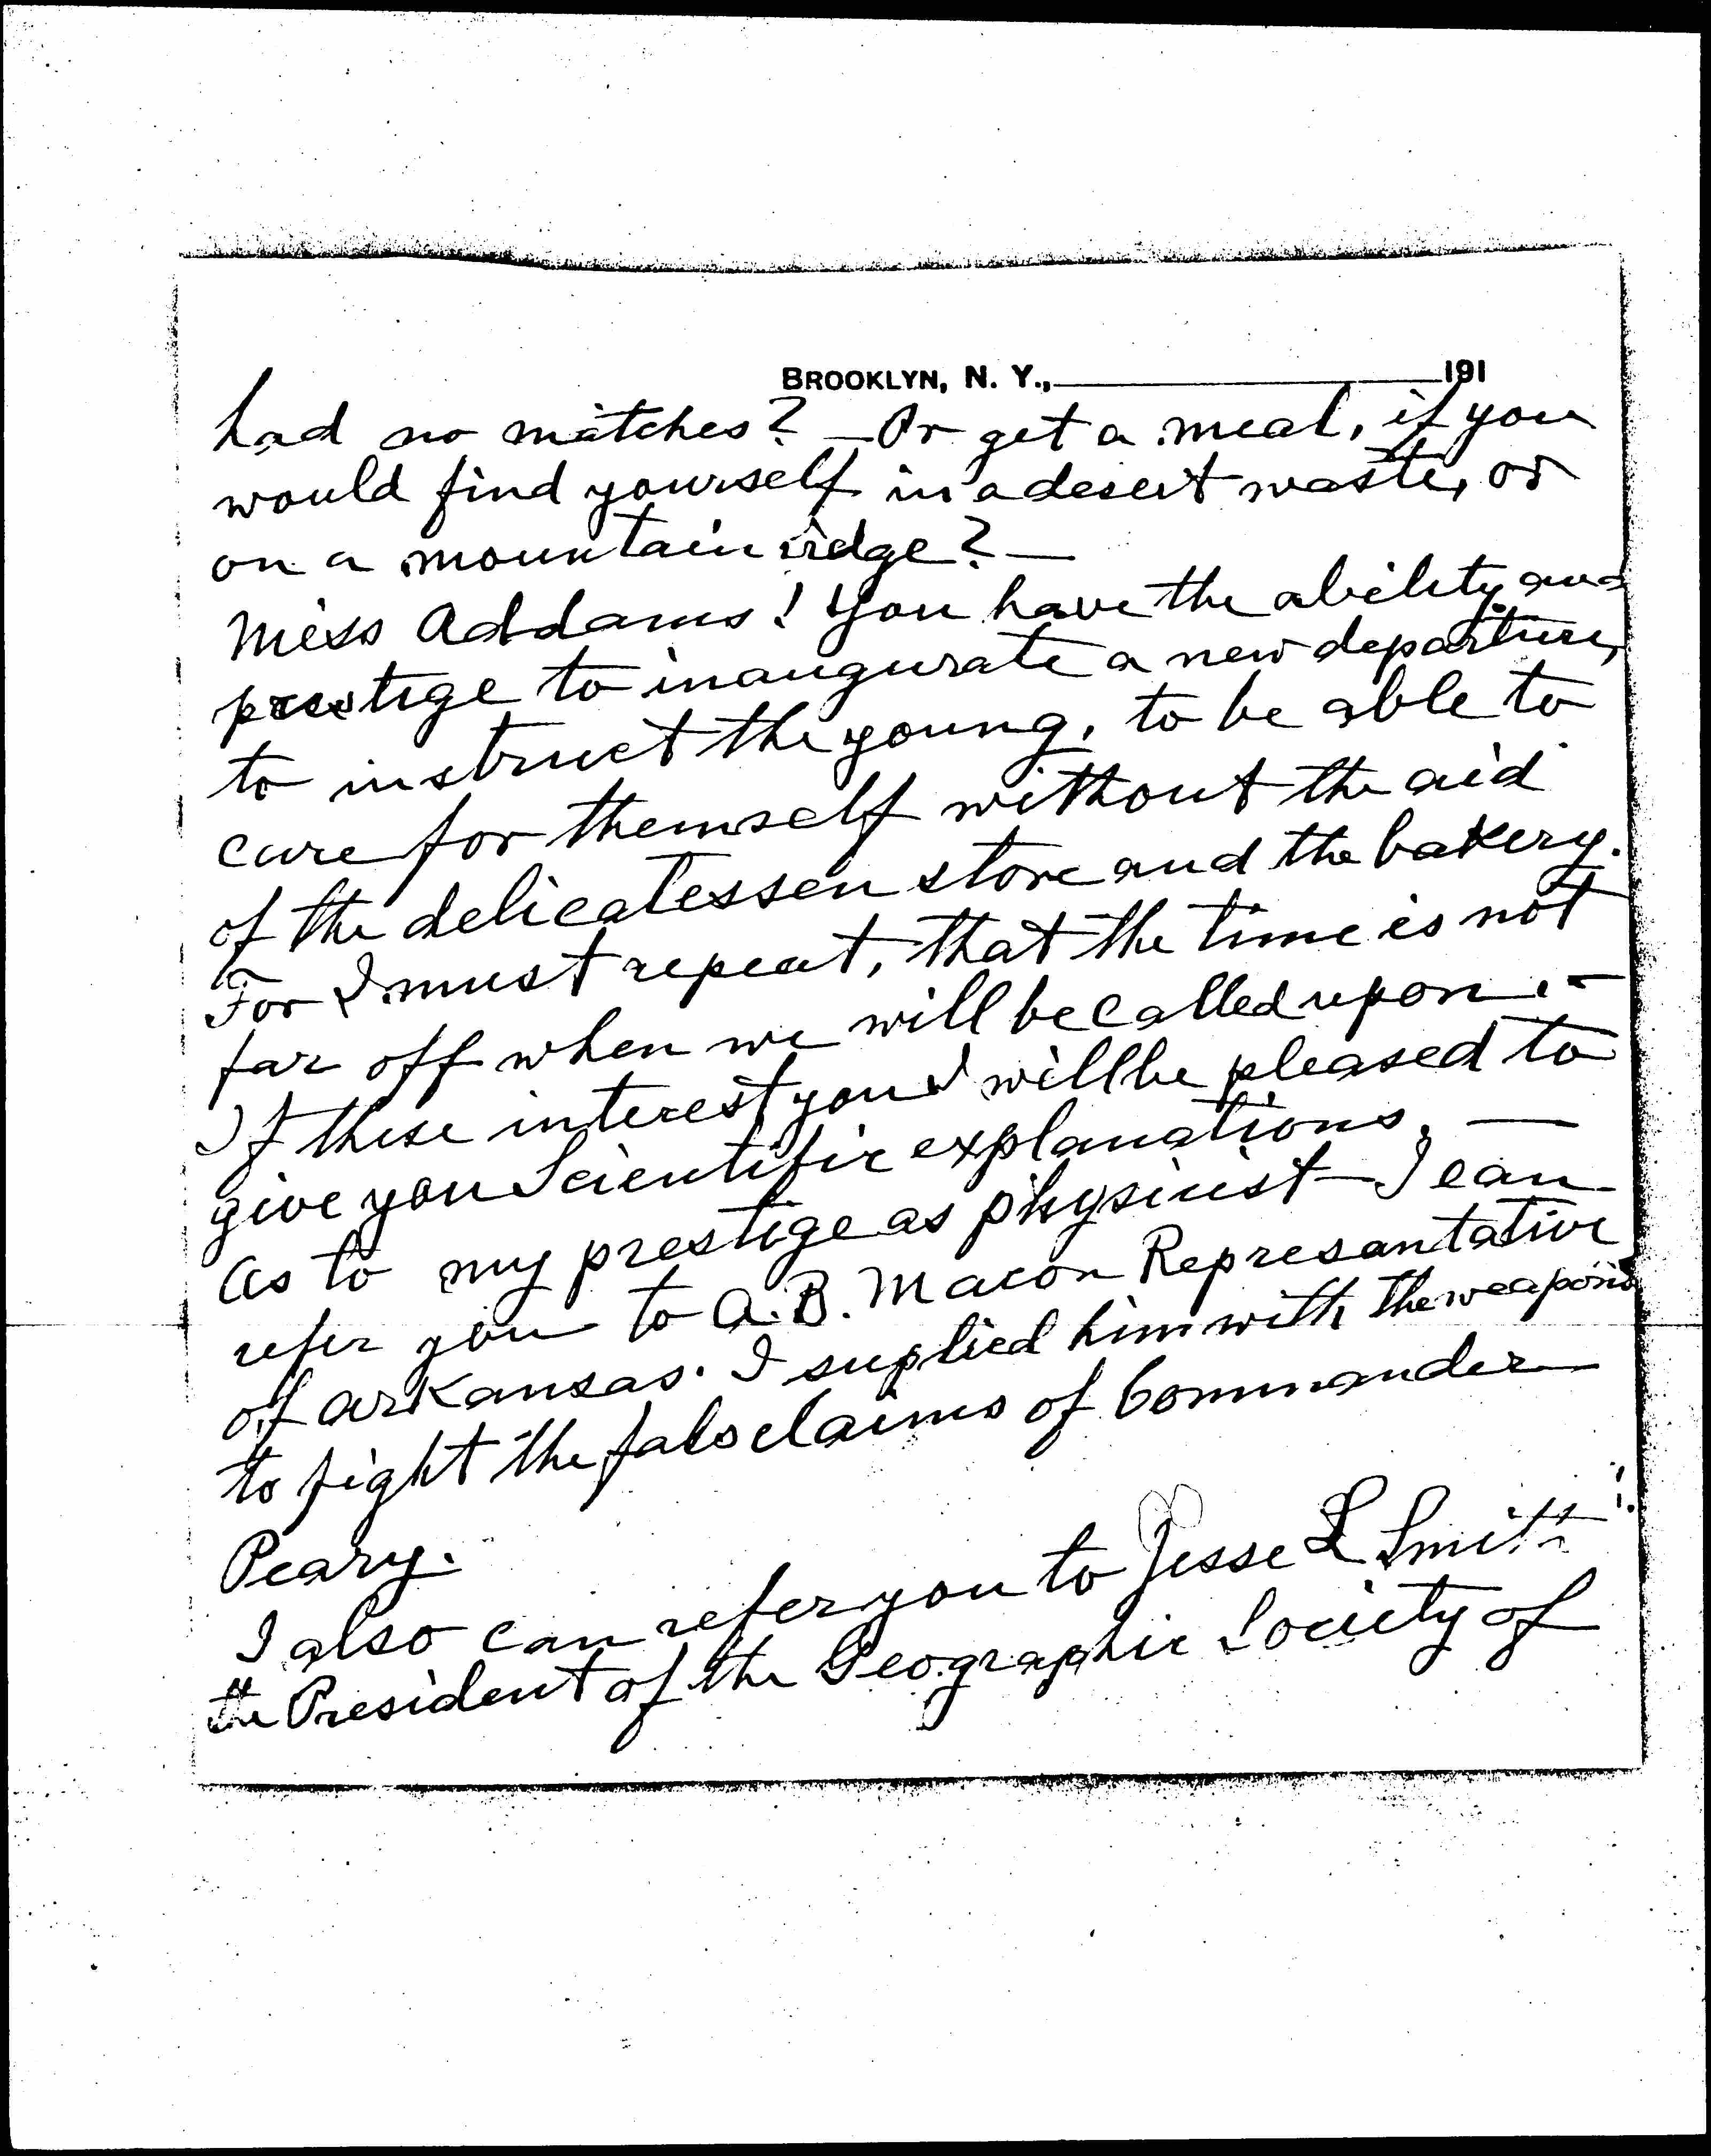 BROOKLYN, N. Y., 191
had no matches? — Or get a meal, if you
would find yourself in a desert waste, or
on a mountain ridge? —
Miss Addams! You have the ability and
prestige to inaugurate a new departure,
to instruct the young, to be able to
care for themself without the aid
of the delicatessen store and the bakery.
For I must repeat, that the time is not
far off when we will be called upon. —
If these interest you I will be pleased to
give you Scientific explanations. —
As to my prestige as physicist — I can
refer you to A. B. Macon Represantative
of Arkansas. I suplied him with the weapons
to fight the fals claims of Commander
Peary.
I also can refer you to Jesse L Smith
the President of the Geographic Society of